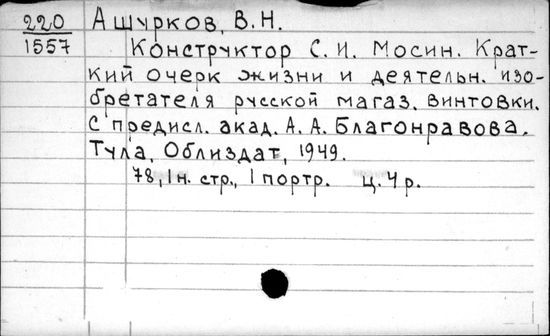 220 Ашурков, В.Н.
1557 Конструктор С. И. Мосин. Крат-
кий очерк жизни и деятельн. изо-
бретателя русской магаз. винтовки.
С предисл. акад. А. А. Благонравова.
Тула, Облиздат, 1949.
78, 1 н. стр., 1 портр. ц. 4 р.